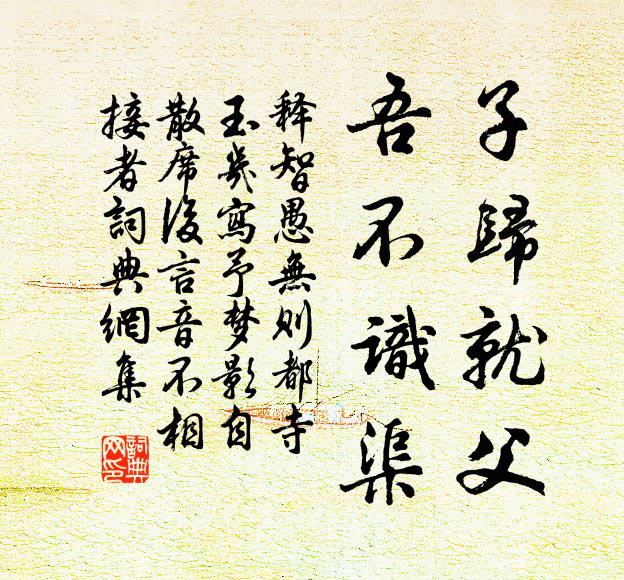 子歸就父
吾不識渠
释智愚無則都寺
玉幾寫予梦影自
散席後言音不相
接者詞典網集
詞典网印